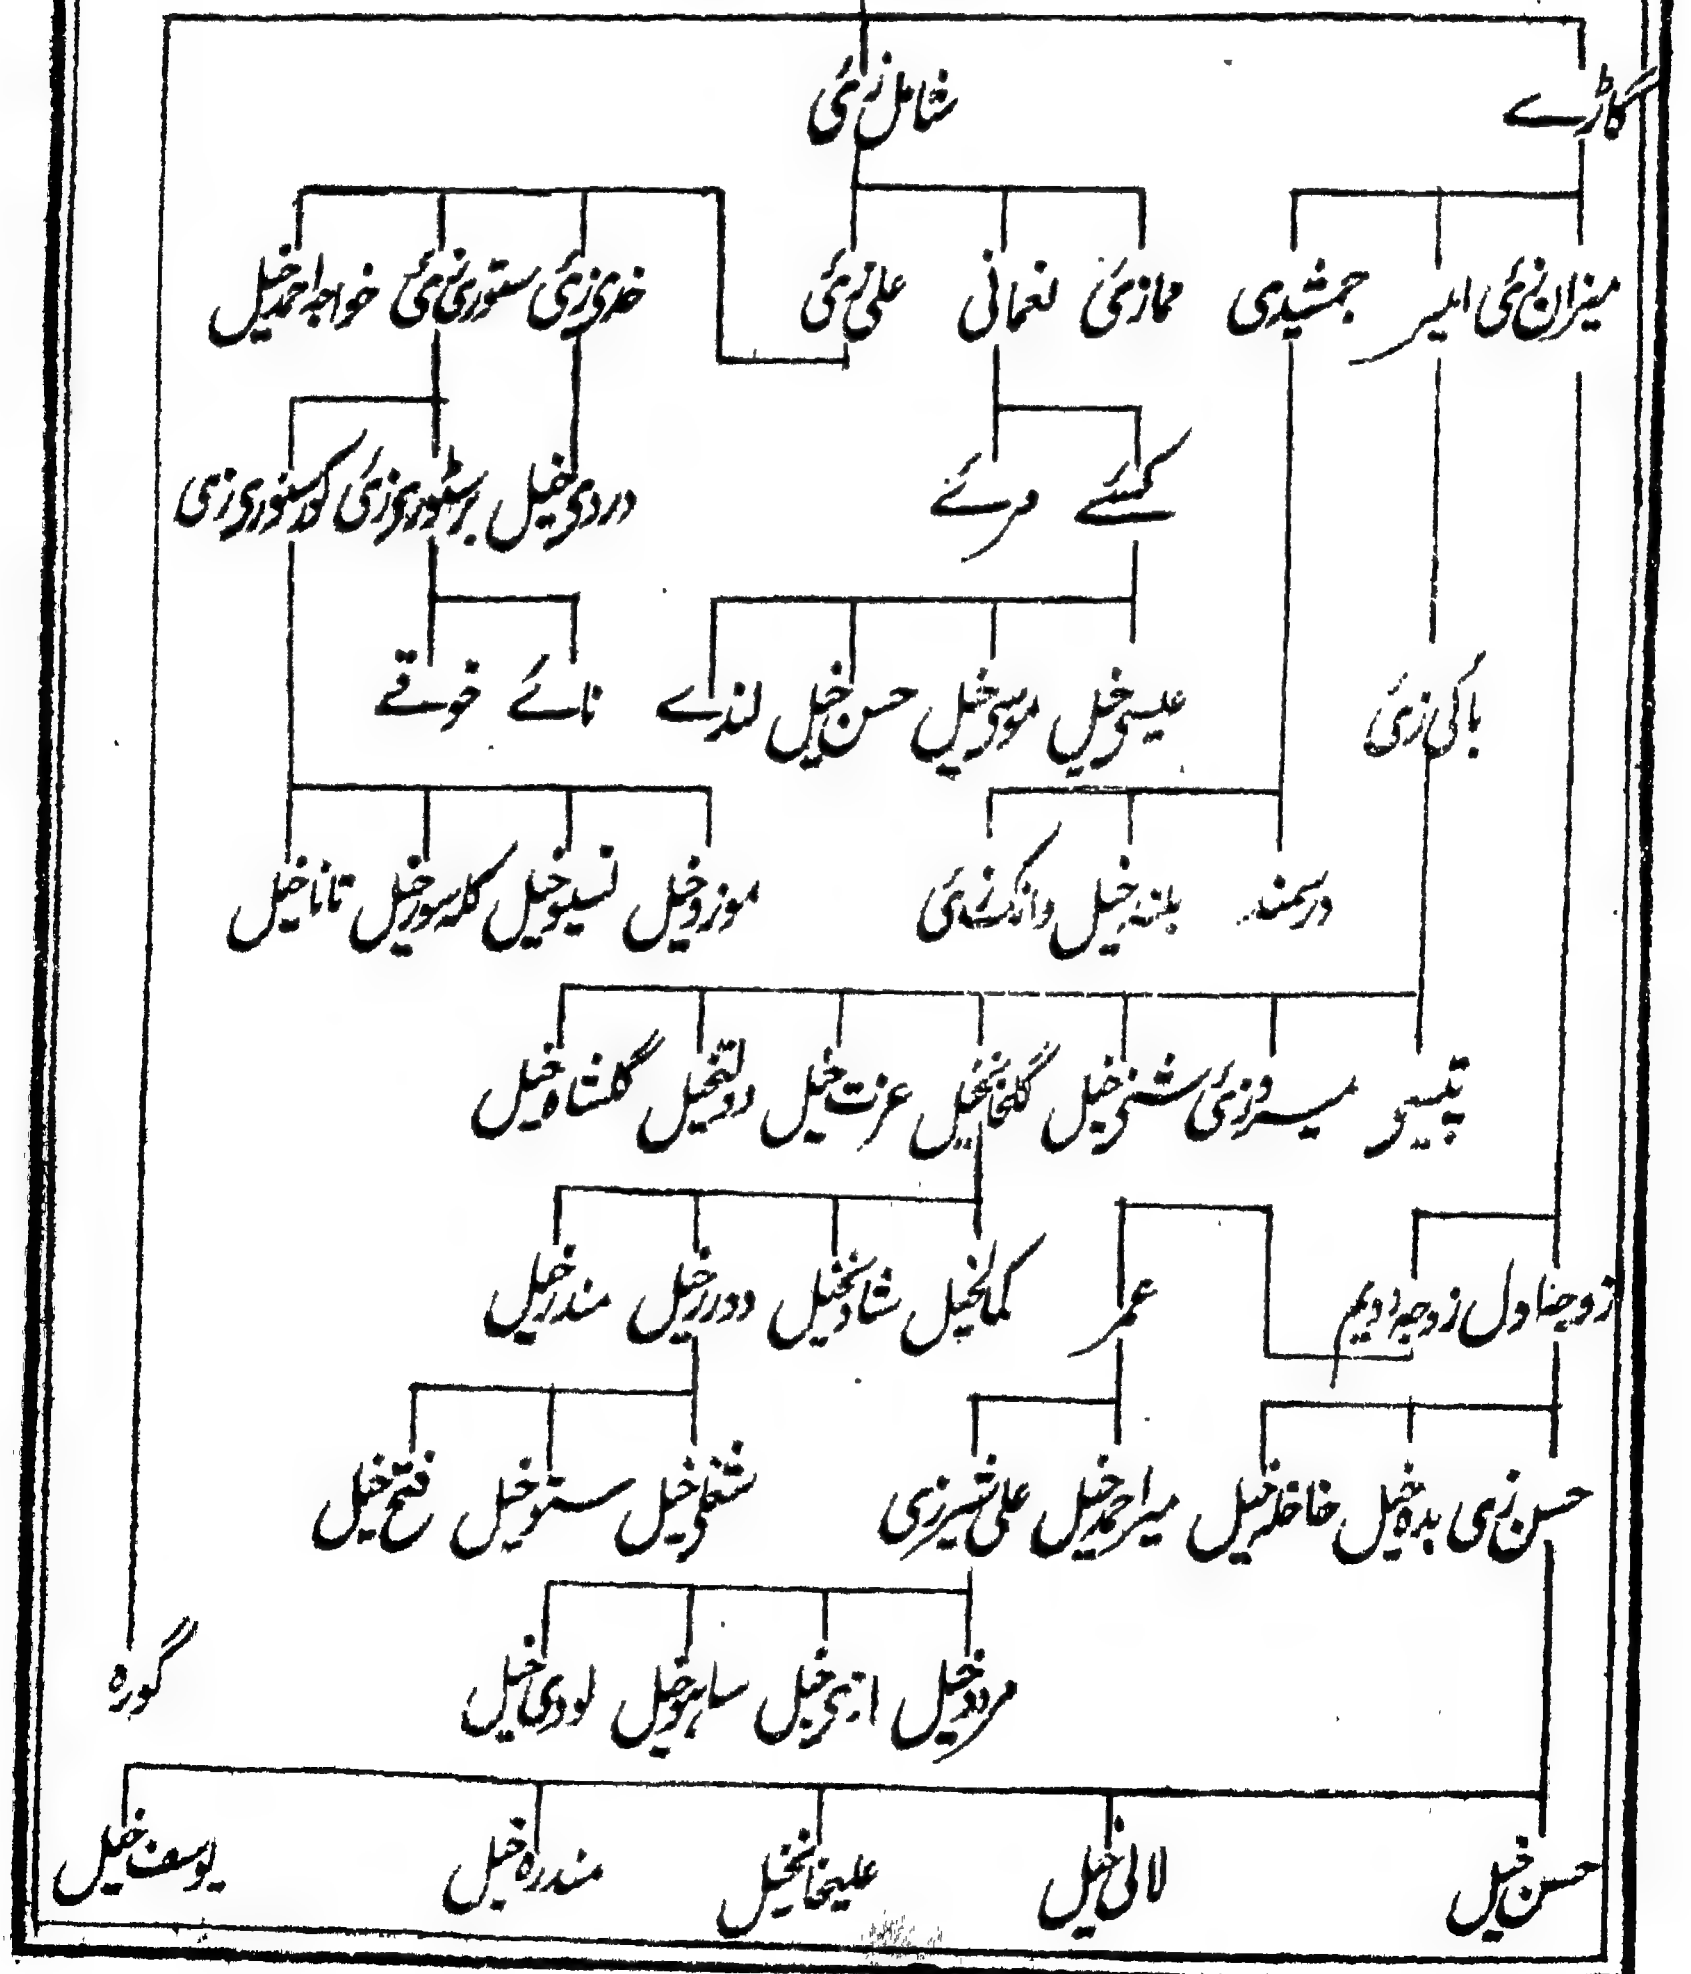 گاڑے شامل زئی
میزان زئی امیر جمشیدی ممازئی لغمانی علی زئی خدی زئی ستوری زئی خواجہ احمد خیل
کسئے مرئے دردی خیل برستوری زئی کوز ستوری زی
باکی زئی عیسی خیل موسی خیل حسن خیل لنڈے نائے خوقے
درسمند بلنہ خیل وانک زئی موزو خیل نسیو خیل کلہ سور خیل تانا خیل
میسروزئی شنی خیل گلخانخیل عزت خیل دولتخیل گلشاہ خیل
زوجہ اول زوجہ دویم عمر کمالخیل شادیخیل دورر خیل مندر خیل
حسن زی بدہ خیل خاخلہ خیل میر احمد خیل علی شیرزی شغلی خیل ستو خیل فتح خیل
مردد خیل انبری خیل ساہو خیل لودی خیل گورہ
حسن خیل لالی خیل علیخانخیل مندرہ خیل یوسف خیل